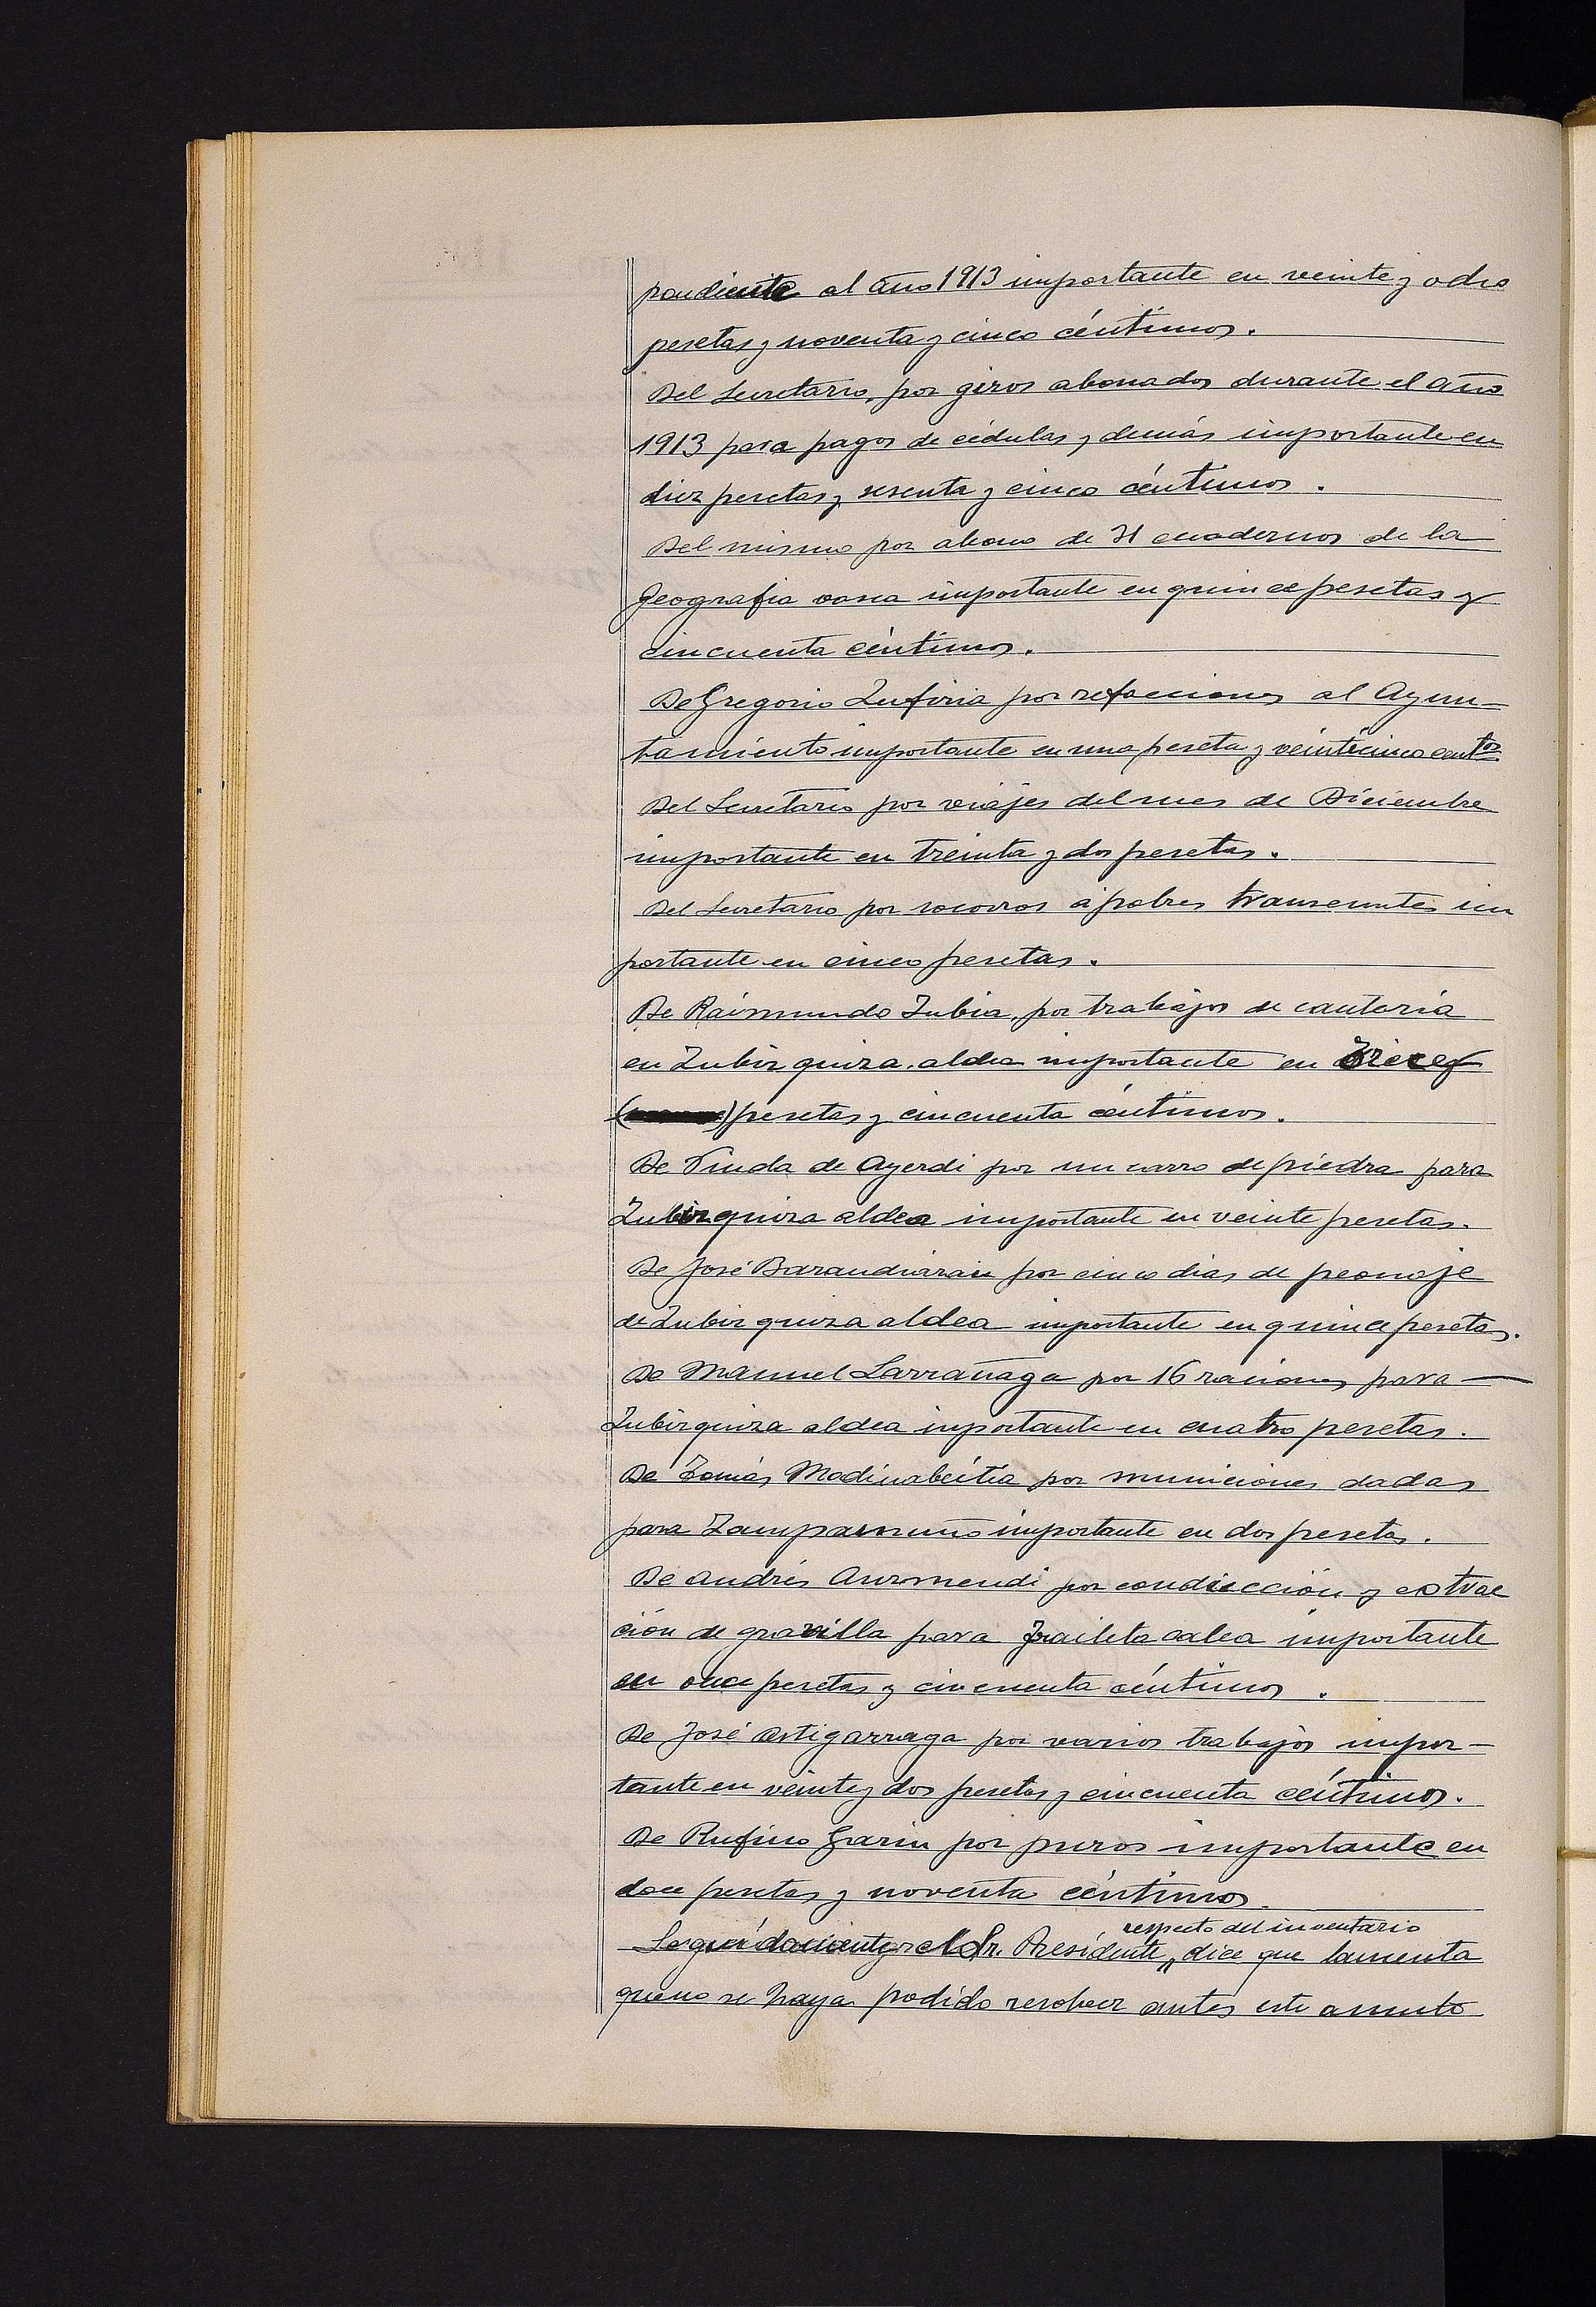 pondiente al año 1913 importante en veinte y ocho
pesetas y noventa y cinco céntimos.
Del Secretario, por giros abonados durante el año
1913 para pagos de cédulas y demás importante en
diez pesetas y sesenta y cinco céntimos.
Del mismo por abono de 31 cuadernos de la
Geografia vasca importante en quince pesetas y
cincuenta céntimos.
De Gregorio Zufiria por refacciones al Ayun-
tamiento importante en una peseta y veinticinco centos.
Del Secretario por viajes del mes de Diciembre
importante en treinta y dos pesetas.
Del Secretario por socorros á pobres transeuntes im
portante en cinco pesetas.
De Raimundo Zubia, por trabajos de cantería
en Zubirquiza aldea importante en
pesetas y cincuenta céntimos.
De Viuda de Ayerdi por un carro de piedra para
Zubirquiza aldea importante en veinte pesetas.
De José Barandiarain por cinco dias de peonaje
de Zubirquiza aldea importante en quince pesetas.
De Manuel Larrañaga por 16 raciones para
Zubirquiza aldea importante en cuatro pesetas.
De Tomás Madinabeitia por municiones dadas
para importante en dos pesetas.
De Andrés Aurmendi por conducción y extrac
ción de gravilla para importante
en once pesetas y cincuenta céntimos.
De José Astigarraga por varios trabajos impor-
tante en veinte y dos pesetas y cincuenta céntimos.
De Rufino Garin por puros importante en
doce pesetas y noventa céntimos.
respecto del inventario
Seguidamente el Sr. Presidente, dice que lamenta
que no se haya podido resolver antes este asunto